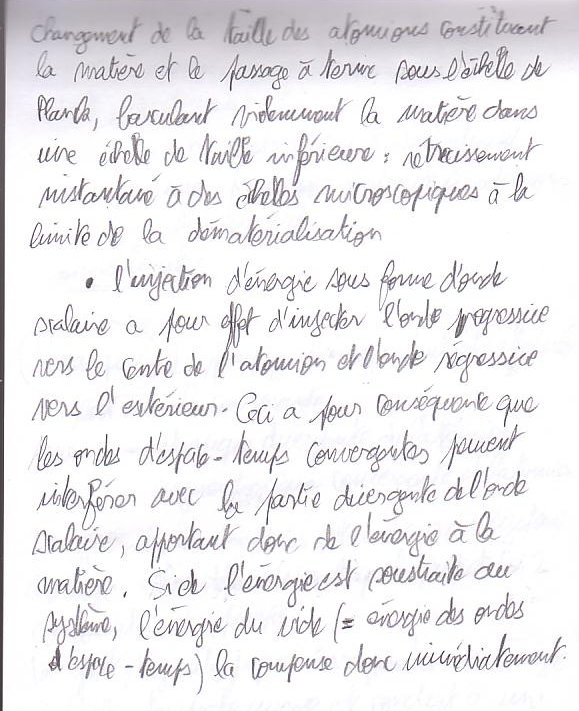 changement de la taille des atomions constituant
la matière et le passage à terme sous l'échelle de
Planck, basculant virtuellement la matière dans
une échelle de taille inférieure : rétrécissement
instantané à des échelles microscopiques à la
limite de la dématérialisation
• l'injection d'énergie sous forme d'onde
scalaire a pour effet d'injecter l'onde progressive
vers le centre de l'atomion et l'onde régressive
vers l'extérieur. Ceci a pour conséquence que
les ondes d'espace-temps convergentes peuvent
interférer avec la partie divergente de l'onde
scalaire, apportant donc de l'énergie à la
matière. Si de l'énergie est soustraite au
système, l'énergie du vide (= énergie des ondes
d'espace-temps) la compense donc immédiatement.